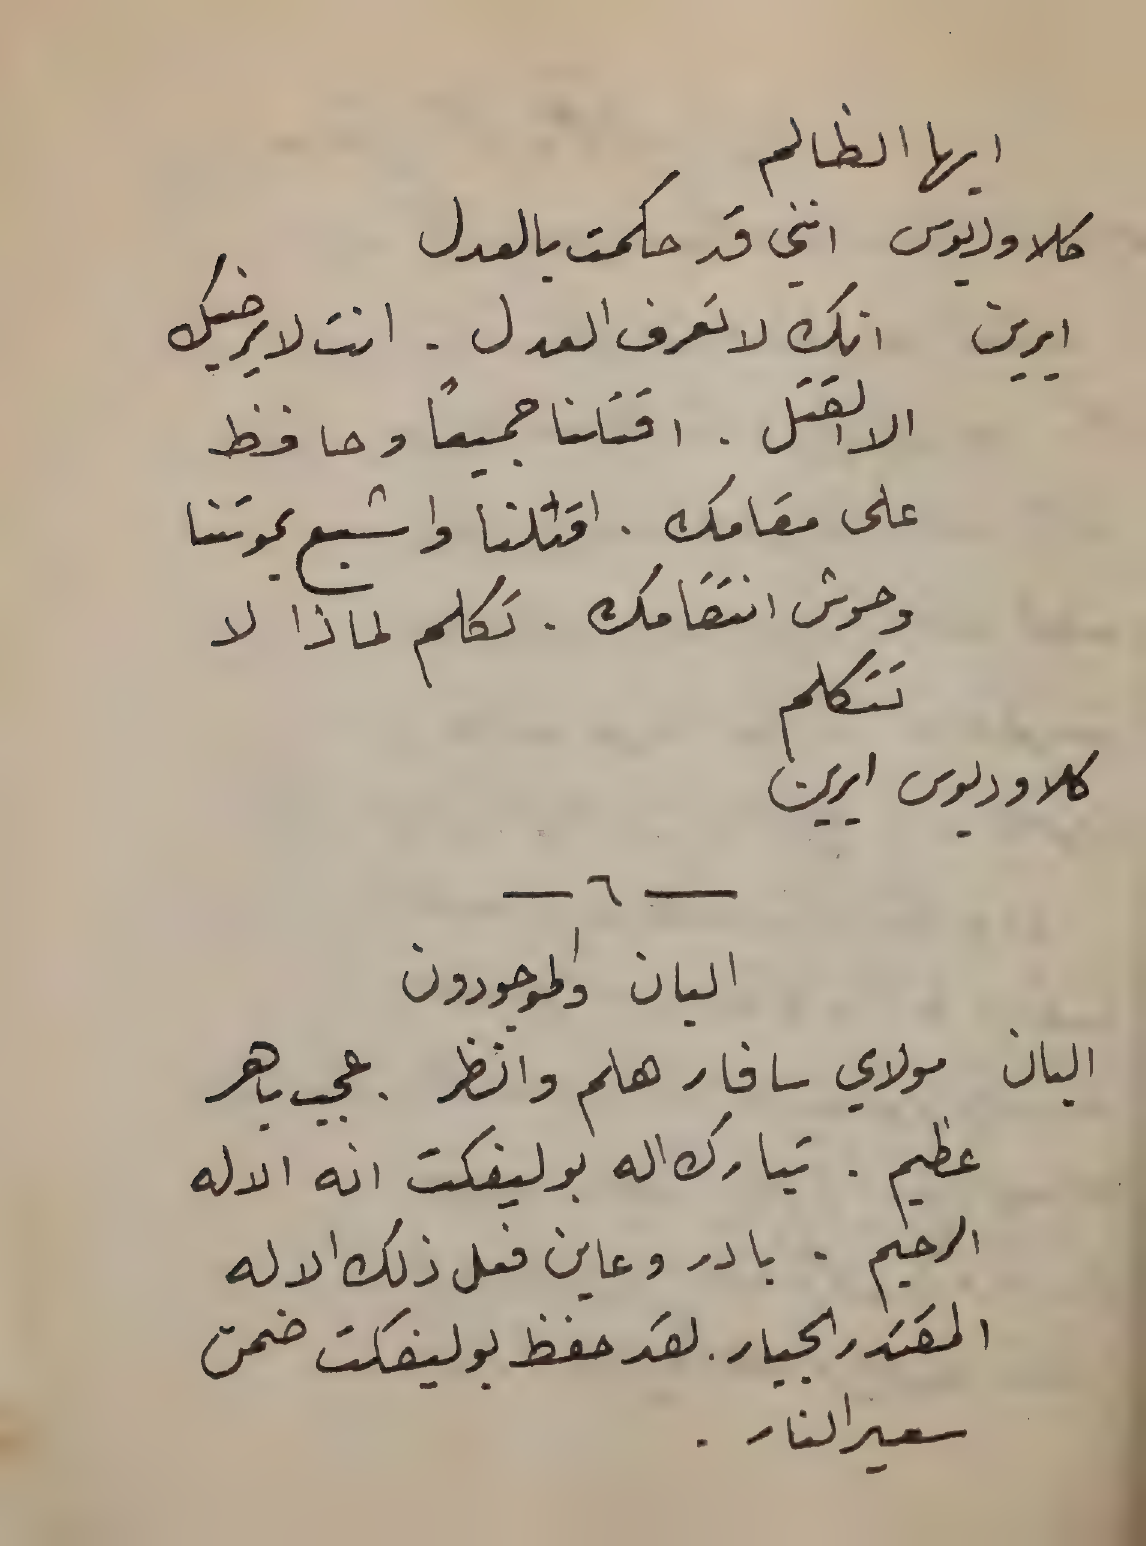 ايها الظالم
كلاوديوس انني قد حكمت بالعدل
ايرين انك لا تعرف العدل . انت لا يرضيك
الا القتل . اقتلنا جميعاً وحافظ
على مقامك . اقتلنا واشبع بموتنا
وحوش انتقامك . تكلم لماذا لا
تتكلم
كلاوديوس ايرين
— ٦ —
البان والموجودون
البان مولاي سافار هلم وانظر . عجيب باهر
عظيم . تبارك اله بوليفكت انه الاله
الرحيم . بادر وعاين فعل ذلك الاله
المقتدر الجبار . لقد حفظ بوليفكت ضمن
سعير النار .